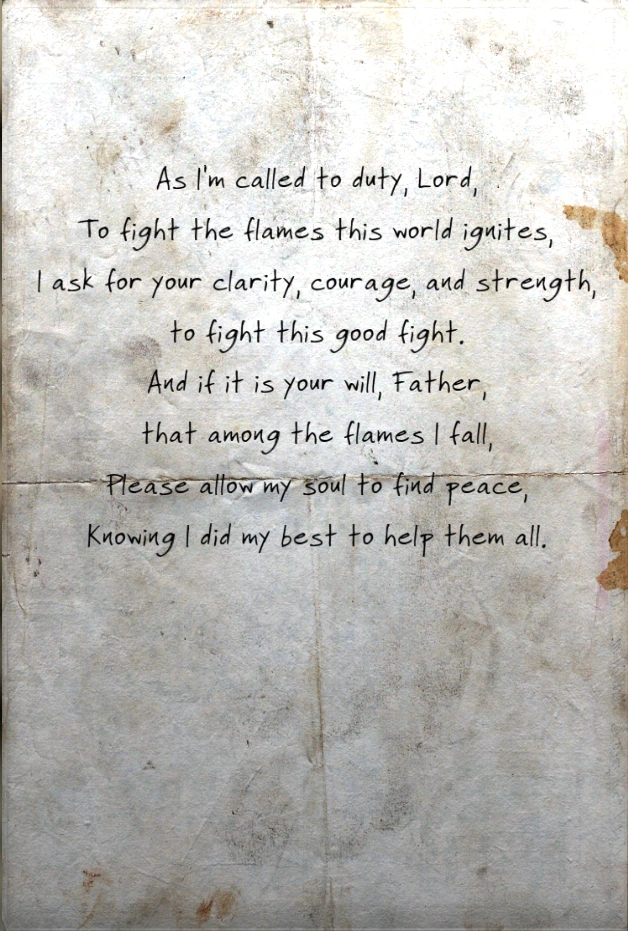 As I'm called to duty, Lord,
To fight the flames this world ignites,
I ask for your clarity, courage, and strength,
to fight this good fight.
And if it is your will, Father,
that among the flames I fall,
Please allow my soul to find peace,
Knowing I did my best to help them all.